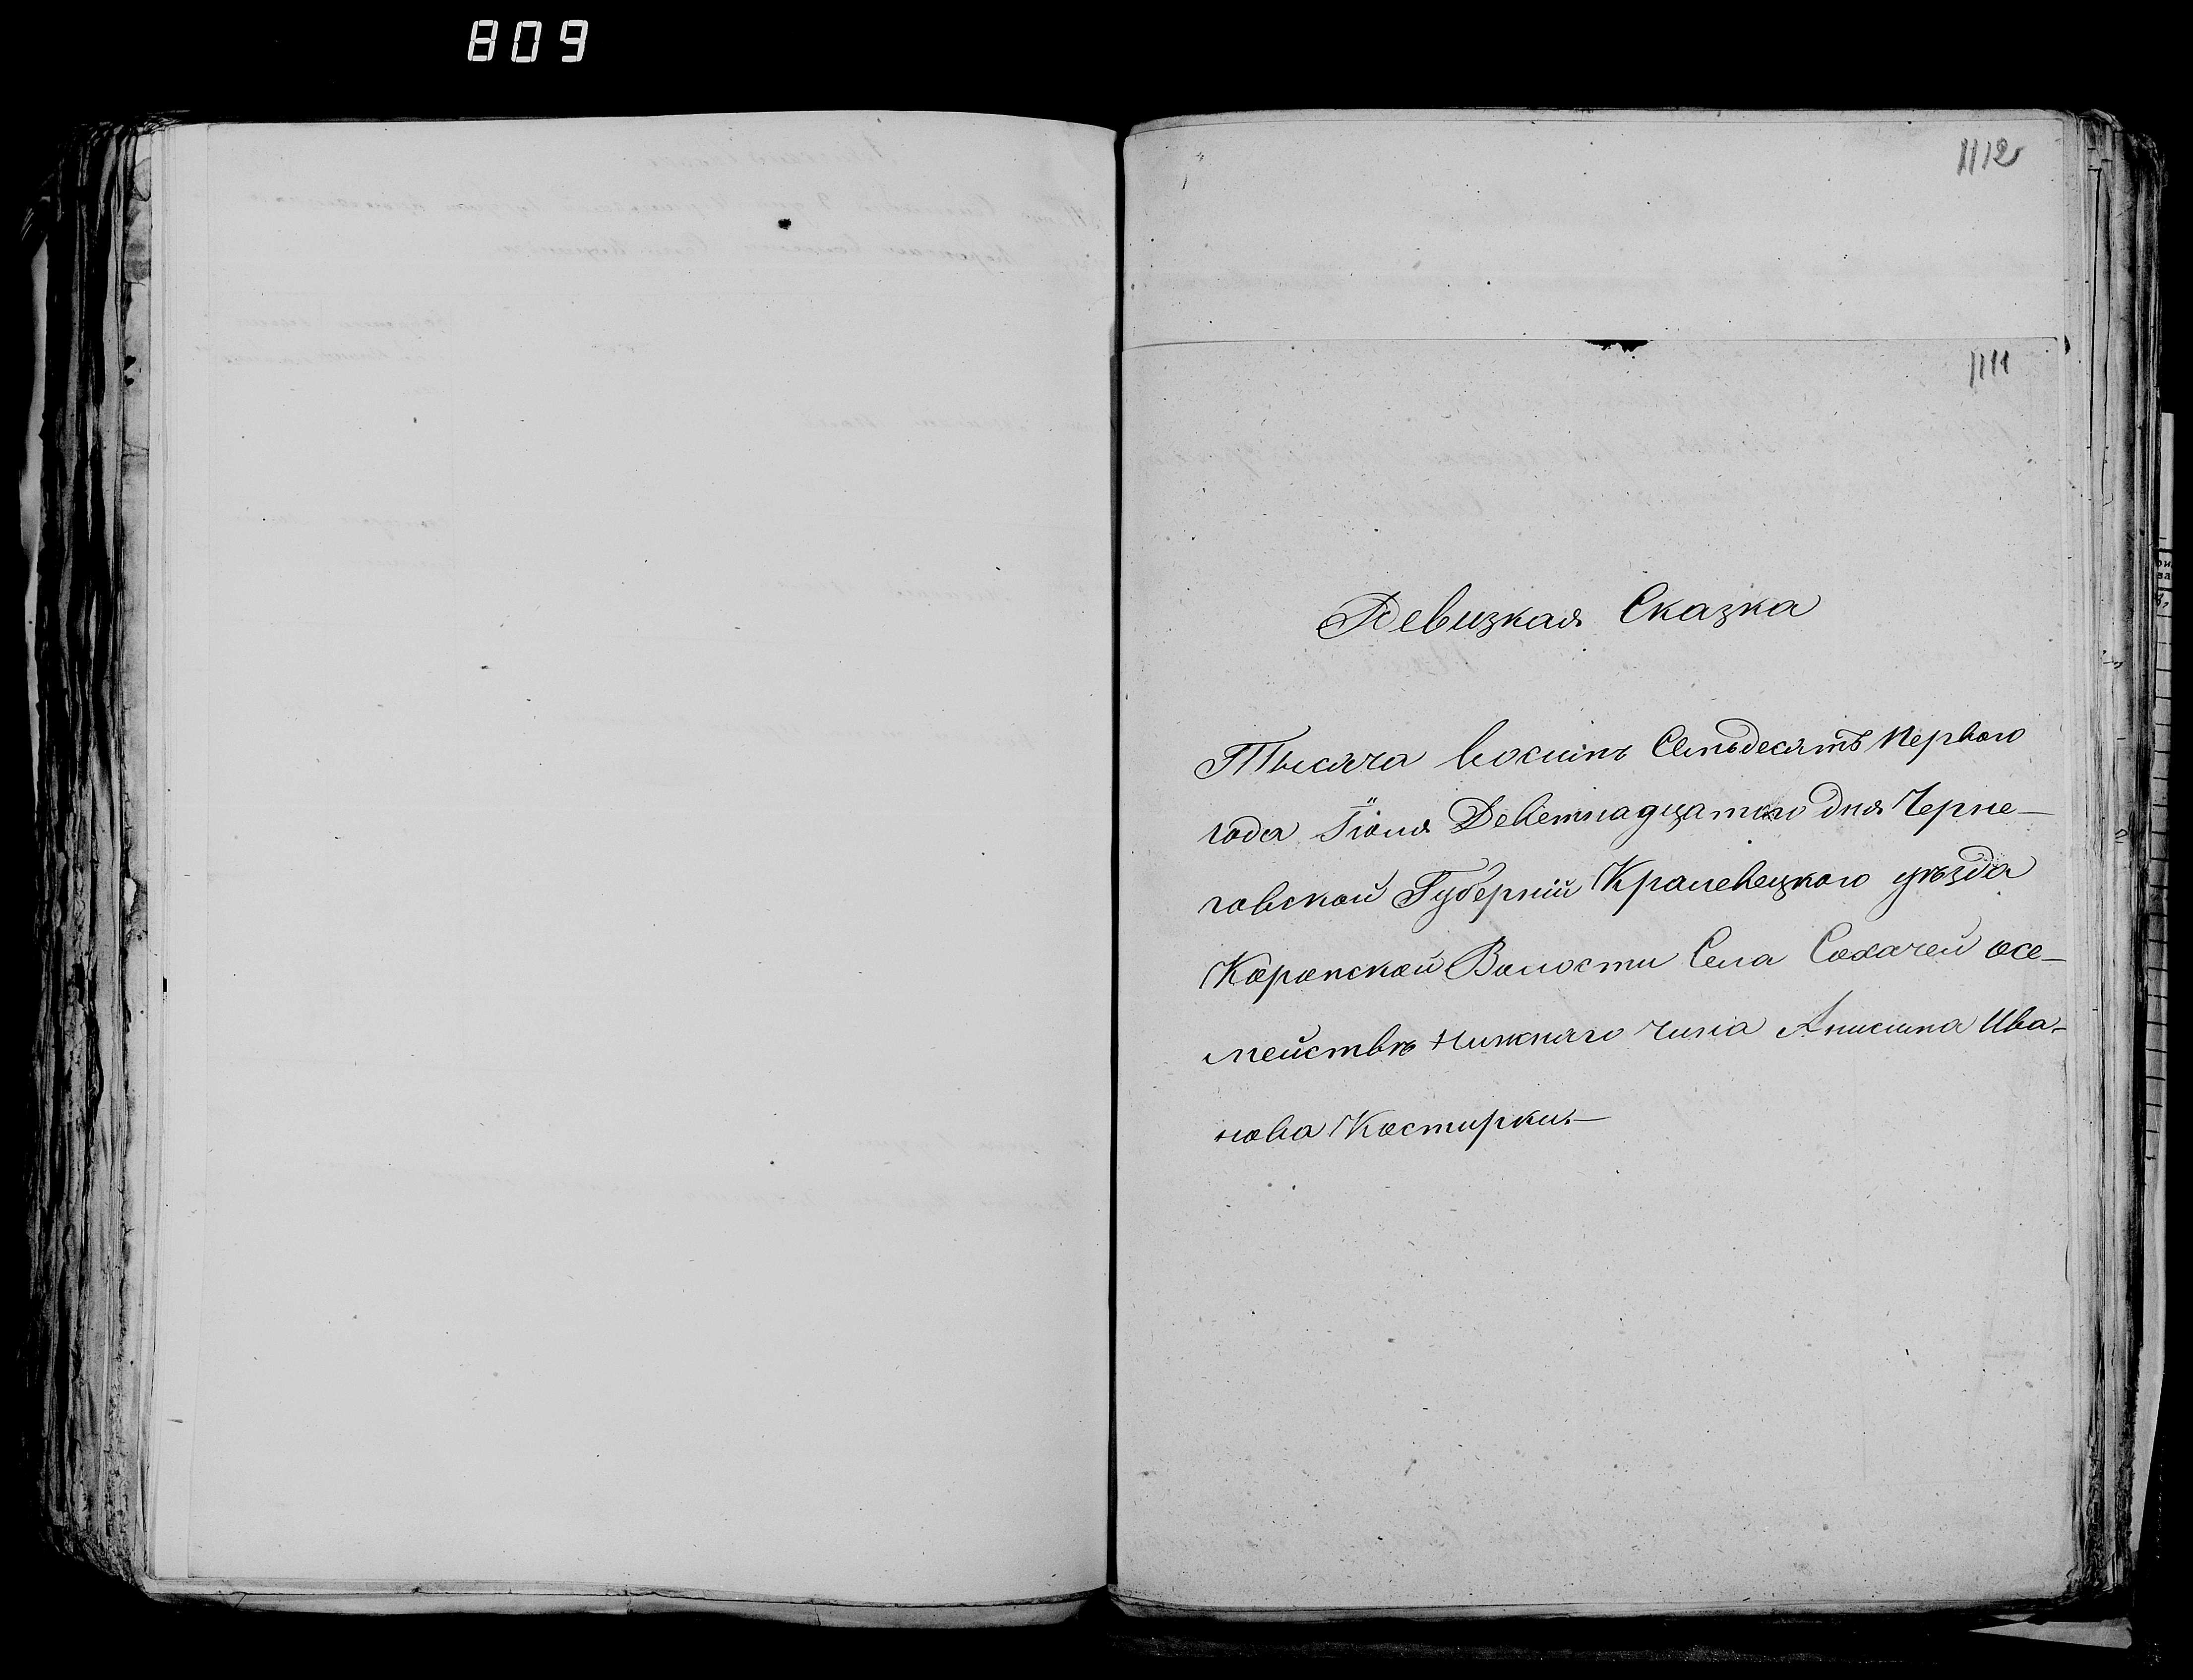 809
1112
1111
Ревизкая Сказка
Тысяча восимъ Семьдесятъ первого
года Іюля Деветнадцатого дня Черне-
говской Губерніи Кралевецкого уѣзда
Коропской Волости Села Сохачей осе-
мействѣ нижняго чина Анисима Ива-
нова Костирки.—